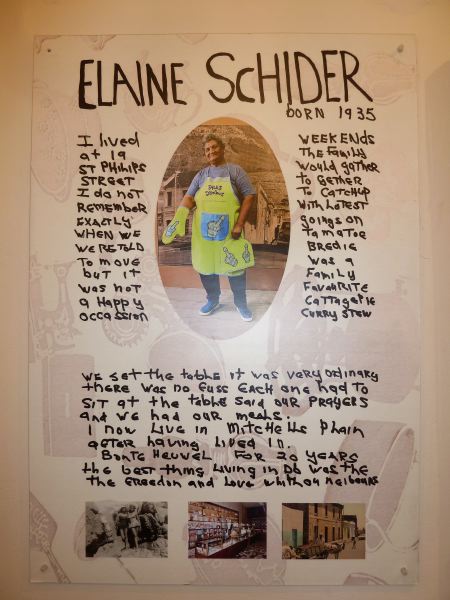 ELAINE SCHIDER
BORN 1935
I lived
at 19
ST Philhips
STREET
I do not
REMEMBER
EXACTLY
WHEN WE
WERE TOLD
To move
but it
was not
a Happy
occassion
WEEKENDS
The family
would gather
to gether
To catchup
with latest
goings on
tamatoe
Bredie
was a
Family
Favourite
cattagePie
curry stew
we set the table it was very ordinary
there was no fuss Each one had to
sit at the table said our PRAyers
and we had our meals.
I now Live in Mitchells Plain
after having Lived in.
Bonte Heuvel FOR 20 YEARS
the best thing Living in D6 was the
the freedon and Love